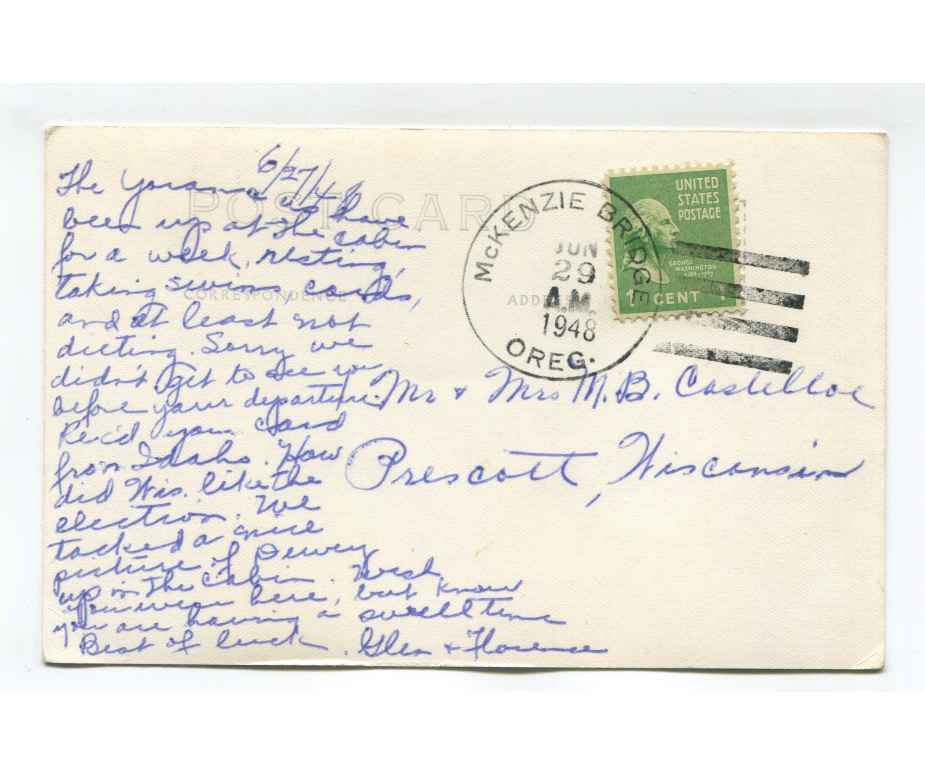 6/27/48
The
POST CARD
have
been up at the cabin
for a week, resting,
taking swims, cards,
CORRESPONDENCE
and at least not
dieting. Sorry we
didn't get to see you
before your departure.
Rec'd your card
from Idaho. How
did Wis. like the
election. We
tacked a nice
picture of Dewey
up in the cabin. Wish
you were here, but know
you are having a swell time
Best of luck. Glen & Florence
McKENZIE BRIDGE
JUN
29
A.M.
1948
OREG.
UNITED
STATES
POSTAGE
GEORGE
WASHINGTON
1 CENT 1
Mr & Mrs M.B. Castelloe
Prescott, Wisconsin